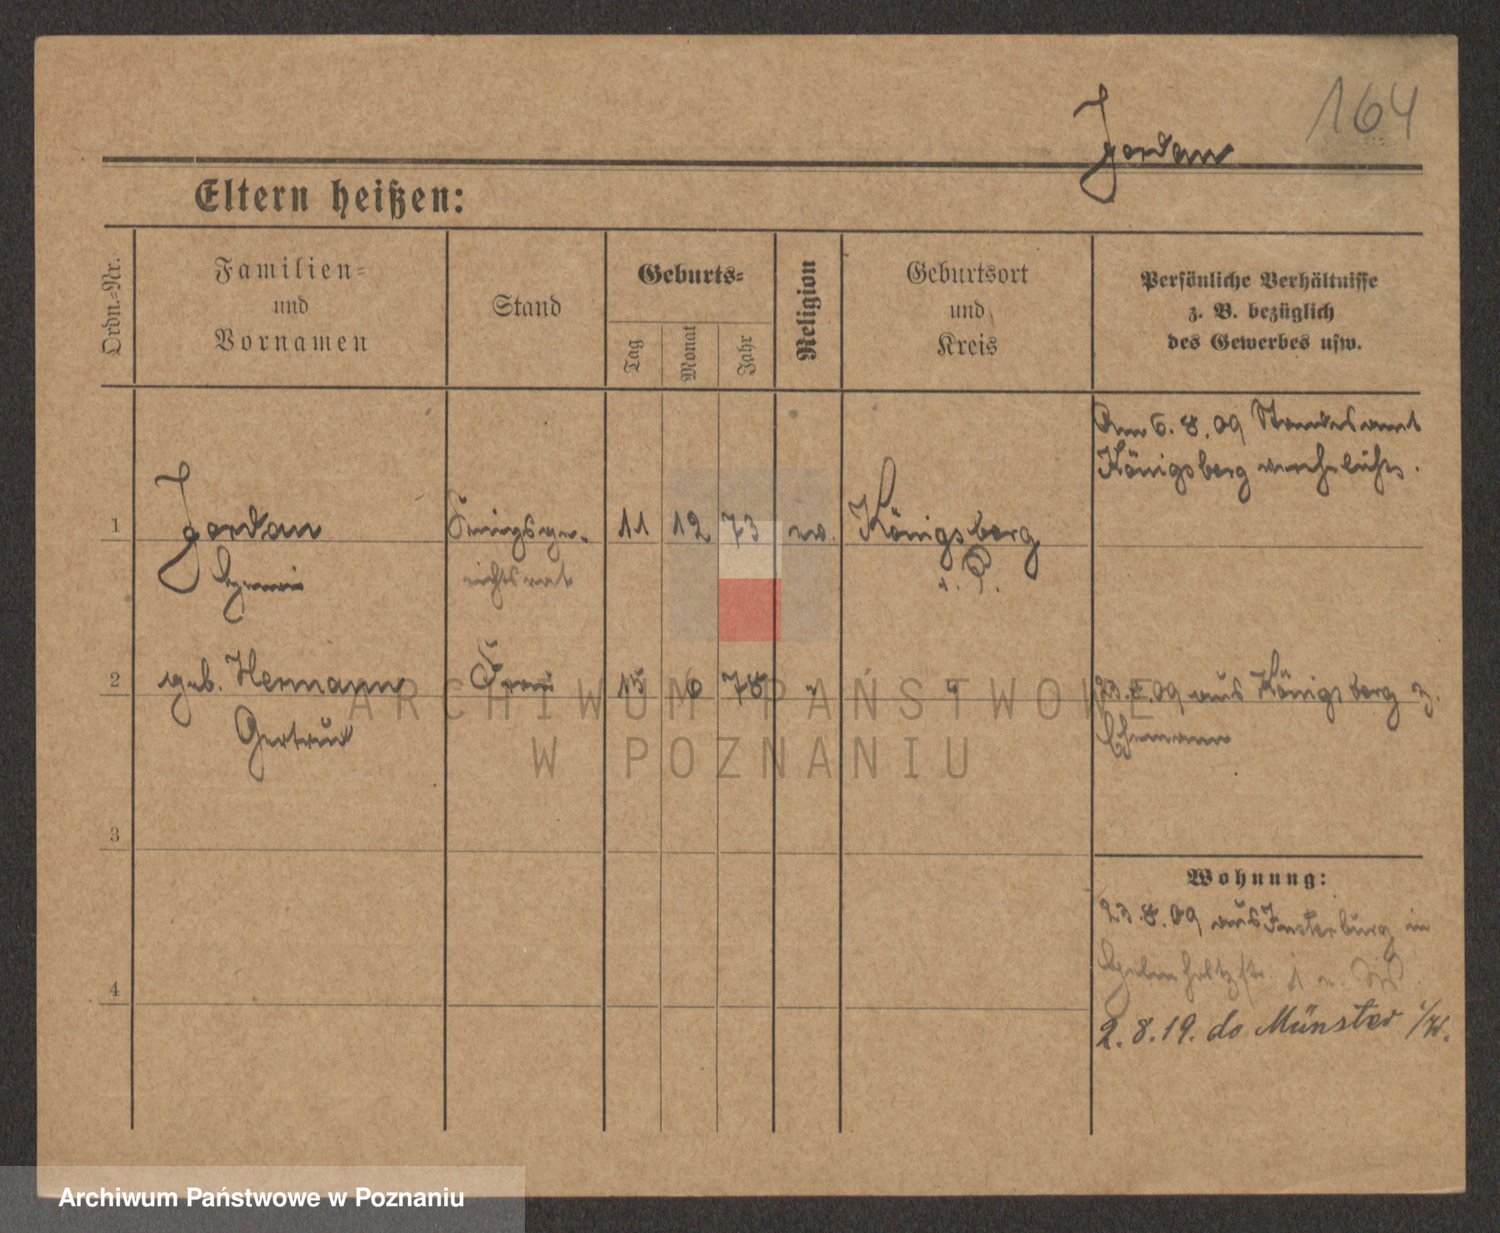 164
Jordan
Eltern heißen:
Ordn.-Nr.
Familien-
und
Vornamen
Stand
Geburts-
Tag
Monat
Jahr
Religion
Geburtsort
und
Kreis
Persönliche Verhältnisse
z. B. bezüglich
des Gewerbes usw.
Am 6.8.09 Standesamt
Königsberg verehelicht.
1 Jordan Kriegsge- 11 12 73 ev. Königsberg
richtsrat i. P.
2 geb. Hermann Frau 15 6 78 " " 23.8.09 aus Königsberg z.
Gertrud Ehemann
3
Wohnung:
23.8.09 aus Insterburg in
4
2.8.19. do Münster i/W.
ARCHIWUM PAŃSTWOWE
W POZNANIU
Archiwum Państwowe w Poznaniu